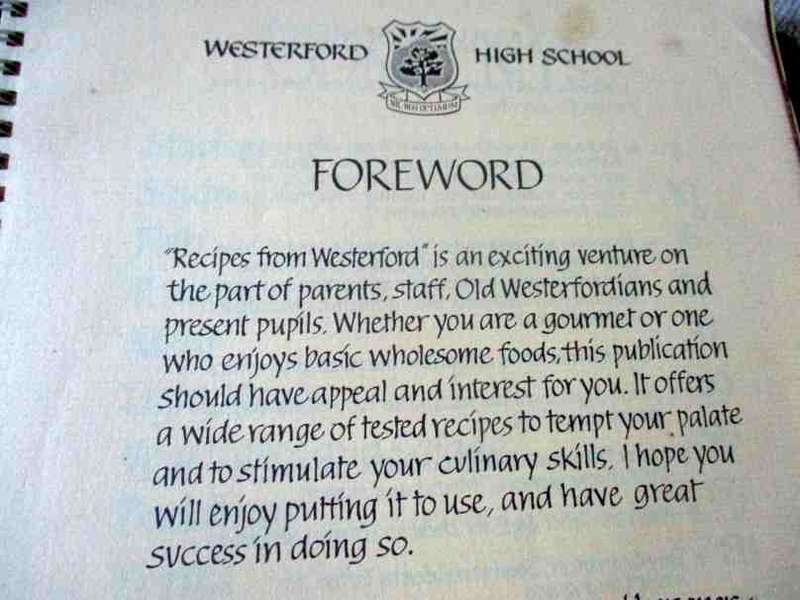 WESTERFORD HIGH SCHOOL
NIL NISI OPTIMUM
FOREWORD
"Recipes from Westerford" is an exciting venture on
the part of parents, staff, Old Westerfordians and
present pupils. Whether you are a gourmet or one
who enjoys basic wholesome foods, this publication
should have appeal and interest for you. It offers
a wide range of tested recipes to tempt your palate
and to stimulate your culinary skills. I hope you
will enjoy putting it to use, and have great
success in doing so.